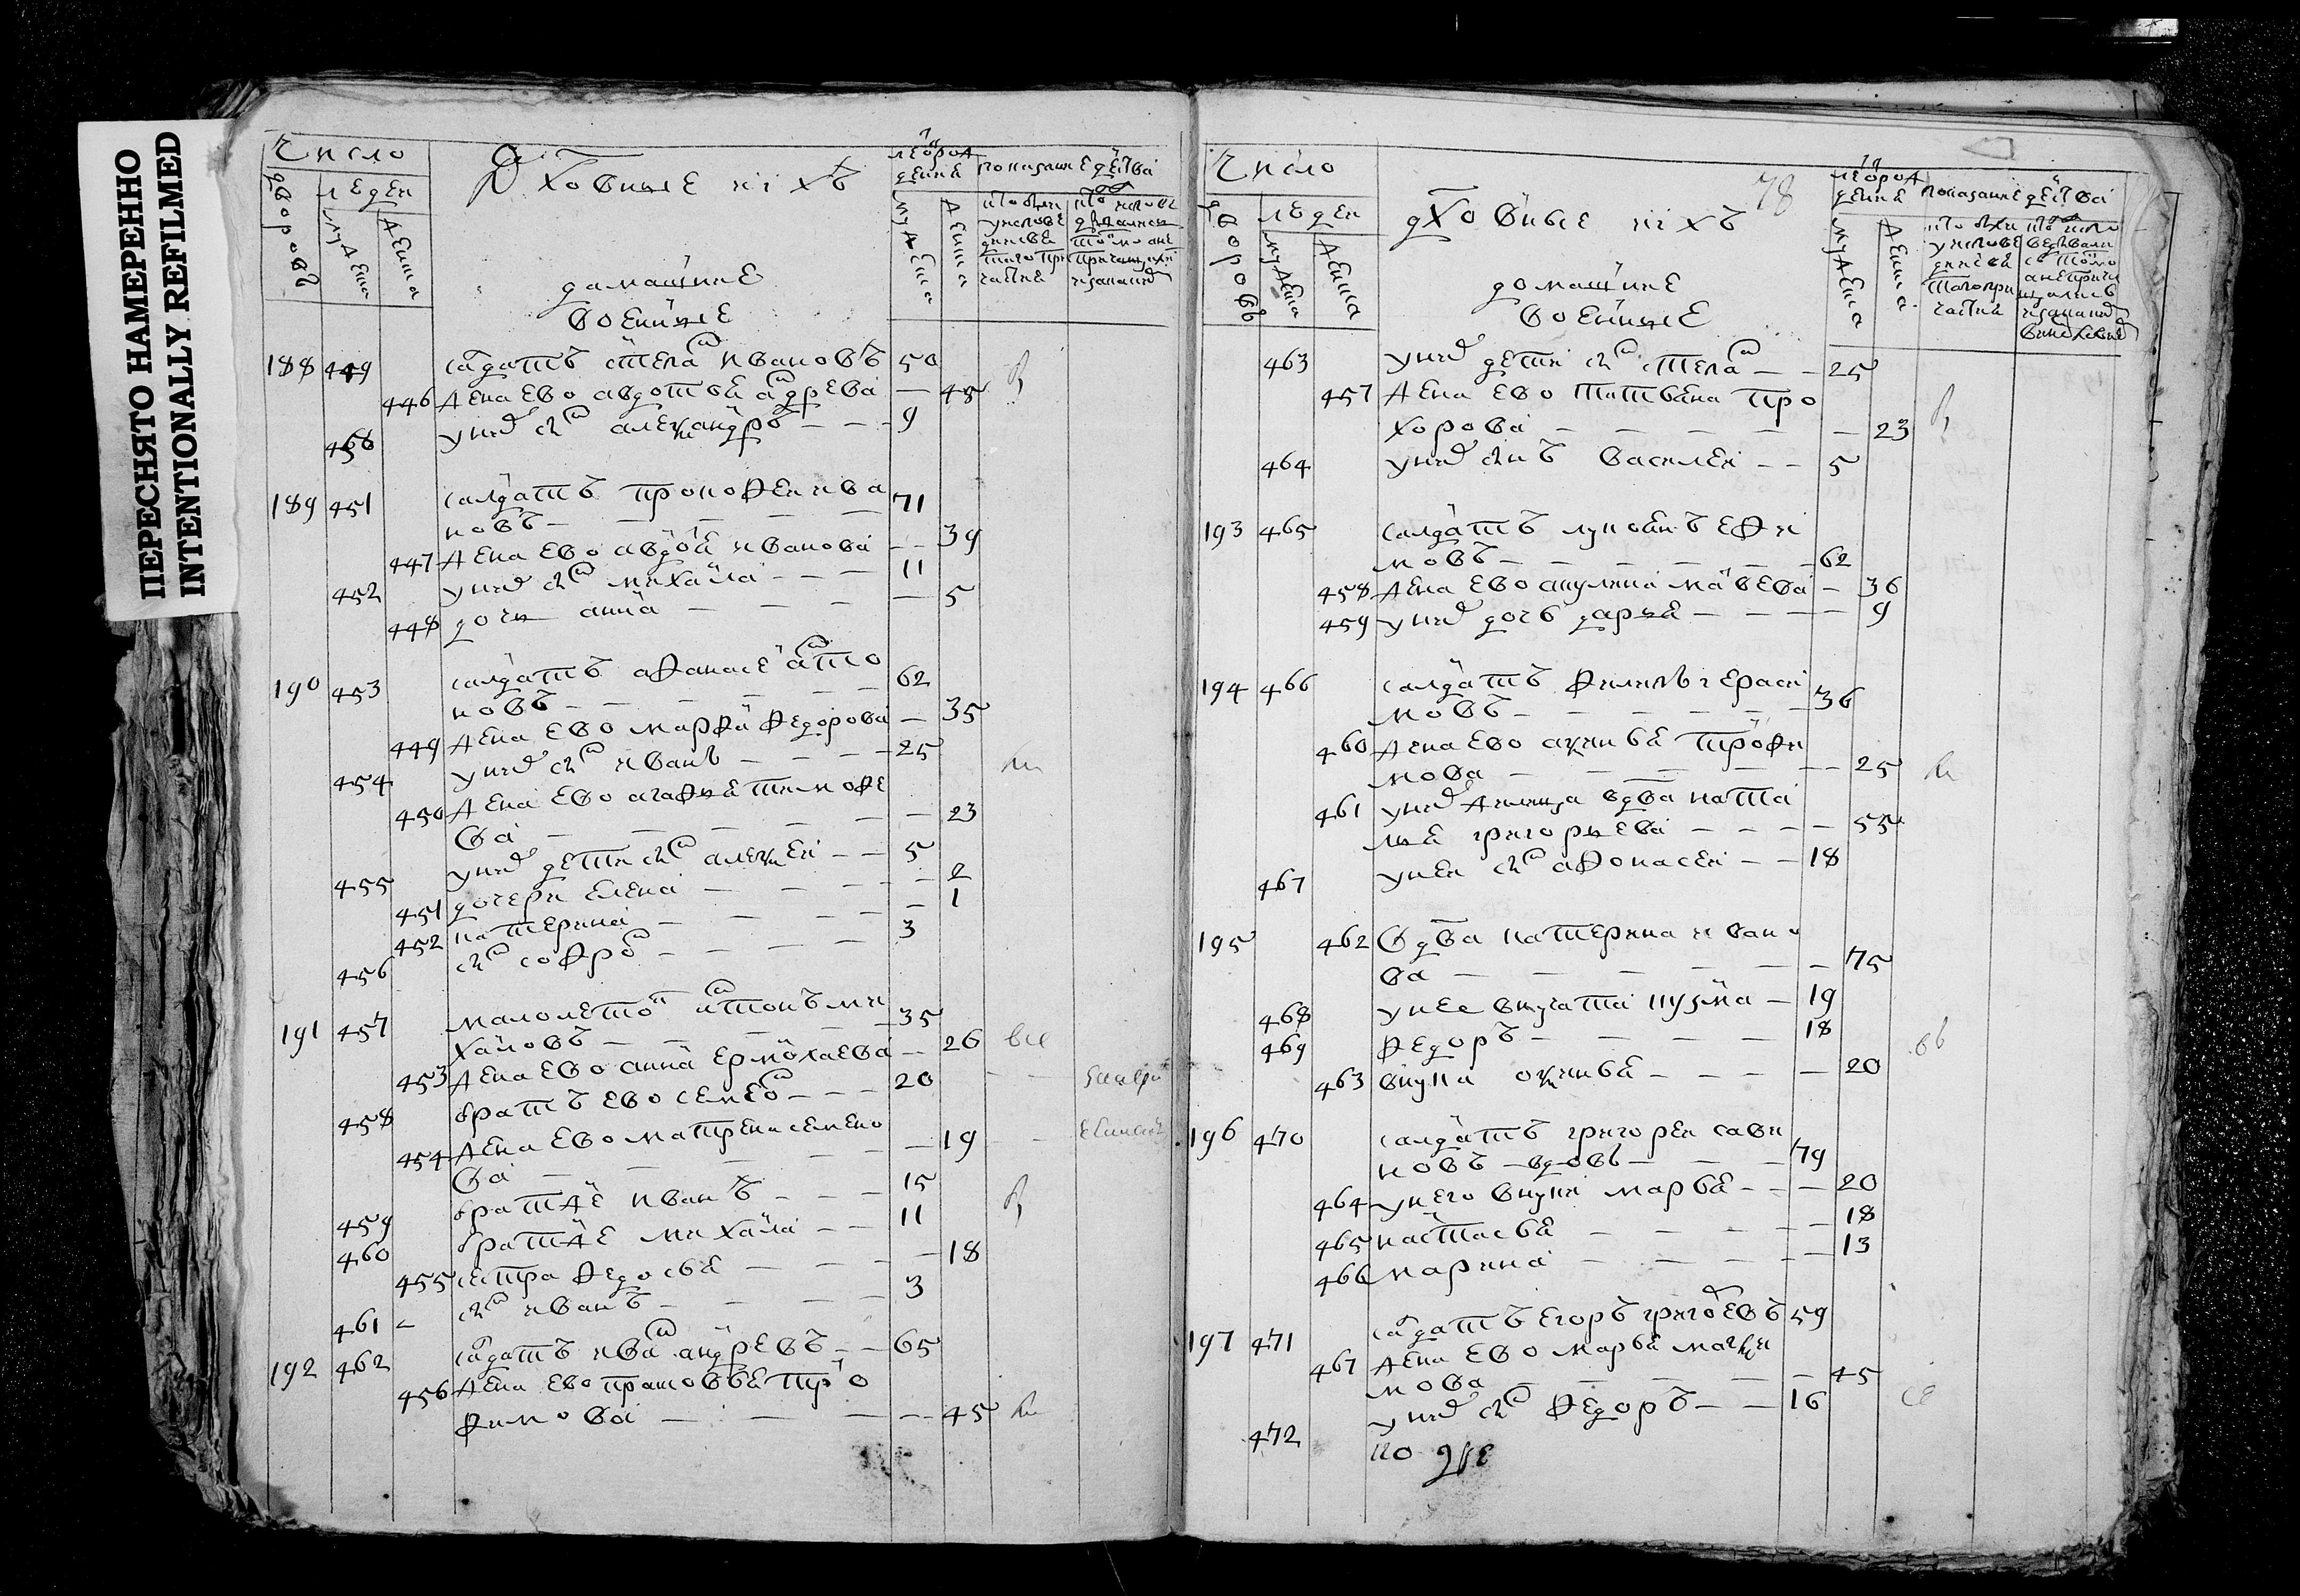 ПЕРЕСНЯТО НАМЕРЕННО
INTENTIONALLY REFILMED
Число
дворовъ
людеи
мужеска
женска
Дховные ні хъ
домашние
военные
лѣ ѿ рож
дение
мужеска
женска
показание дѣства
188 449 салдатъ степан ивановъ 50
446 жена ево авдотья андреева — 48
450 у них сын александръ — — 9
189 451 салдатъ прокофеи ива
новъ — — — — — 71
447 жена ево авдотя иванова — — 39
452 у них сын михаила — — — 11
448 дочь анна — — — — 5
190 453 салдатъ афанасе анто
новъ — — — — — 62
449 жена ево марфа федорова — 35
454 у них сын иванъ — — — 25
450 жена ево агафья тимофе
ва — — — — — 23
455 у них дети сын алексеи — — 5
451 дочери елена — — — — 2
452 катерина — — — — 1
456 сын софрон — — — — 3
191 457 малолетнои антонъ ми
хаиловъ — — — — 35
453 жена ево анна ермолаева — 26 все
458 братъ ево семен — — — 20
454 жена ево матрена семено
ва — — — — — 19
459 братже иванъ — — — 15
460 братже михаила — — 11
455 сестра федосья — — — — 18
461 сын иванъ — — — — 3
192 462 салдатъ иван андревъ — — 65
456 жена ево прасковья про
фимова — — — — 45
Число 78
дворовъ
людеи
мужеска
женска
дховные ні хъ
домашние
военные
лѣ ѿ рож
дение
мужеска
женска
показание дѣства
463 у них дети сын степан — — 25
457 жена ево татьяна про
хорова — — — — — 23
464 у них сынъ василеи — — 5
193 465 салдатъ лукоянъ ефи
мовъ — — — — — 62
458 жена ево акулина матвева — 36
459 у них дочь дарья — — — — 9
194 466 салдатъ филипъ гераси
мовъ — — — — — — 36
460 жена ево аксинья трофи
мова — — — — — — 25
461 у них жилица вдва ната
лья григорьева — — — — 55
467 у неи сын афонасеи — — 18
195 462 вдва катерина ивано
ва — — — — — — 75
468 у нее внучата кузма — 19
469 федоръ — — — — 18
463 внука оксинья — — — — 20
196 470 салдатъ григореи сави
новъ — вдовъ — — — 79
464 у него внуки марья — — — 20
465 настасья — — — — — 18
466 марина — — — — — 13
197 471 салдатъ егоръ григоревъ 59
467 жена ево марья макси
мова — — — — — 45
472 у них сын федоръ — — 16